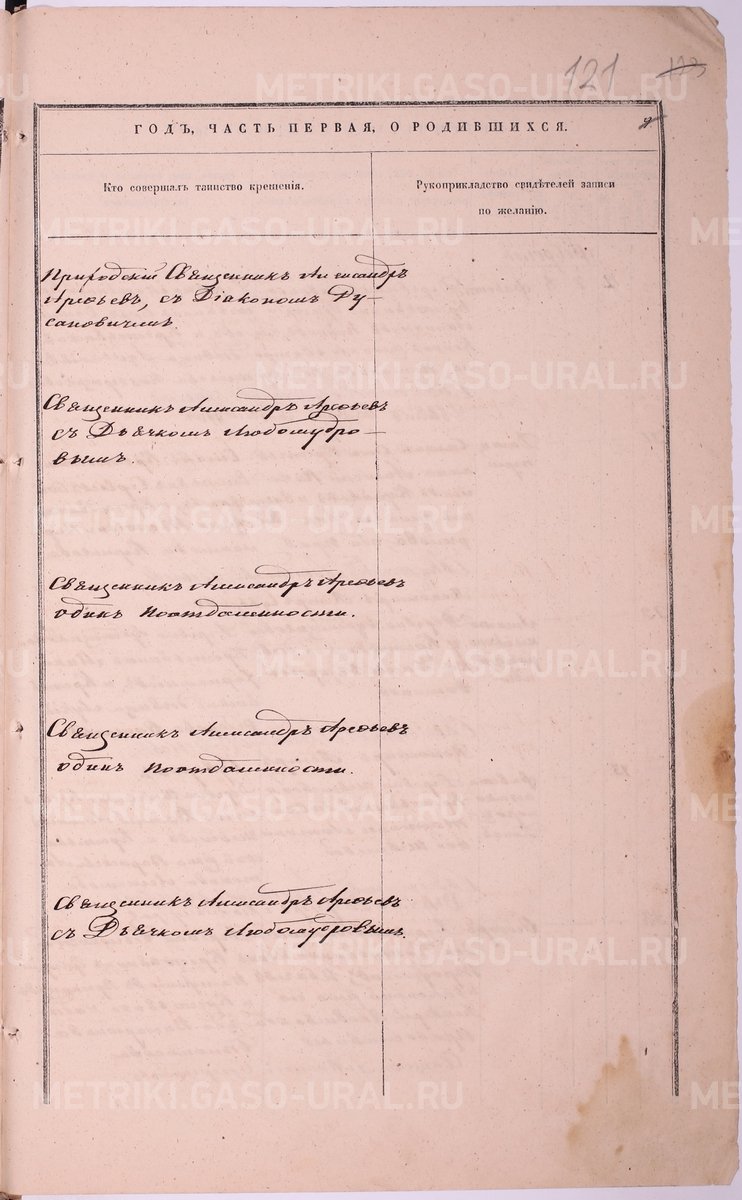 121
ГОДЪ, ЧАСТЬ ПЕРВАЯ, О РОДИВШИХСЯ.
Кто совершалъ таинство крещенія.
Рукоприкладство свидѣтелей записи
по желанію.
Приходскій Священникъ Александръ
Арефьевъ, съ Діакономъ Ру-
сановичемъ.
Священникъ Александръ Арефьевъ
съ Дьячкомъ Любомудро-
вымъ.
Священникъ Александръ Арефьевъ
одинъ поотдаленности.
Священникъ Александръ Арефьевъ
одинъ поотдаленности.
Священникъ Александръ Арефьевъ
съ Дьячкомъ Любомудровымъ.
METRIKI.GASO-URAL.RU